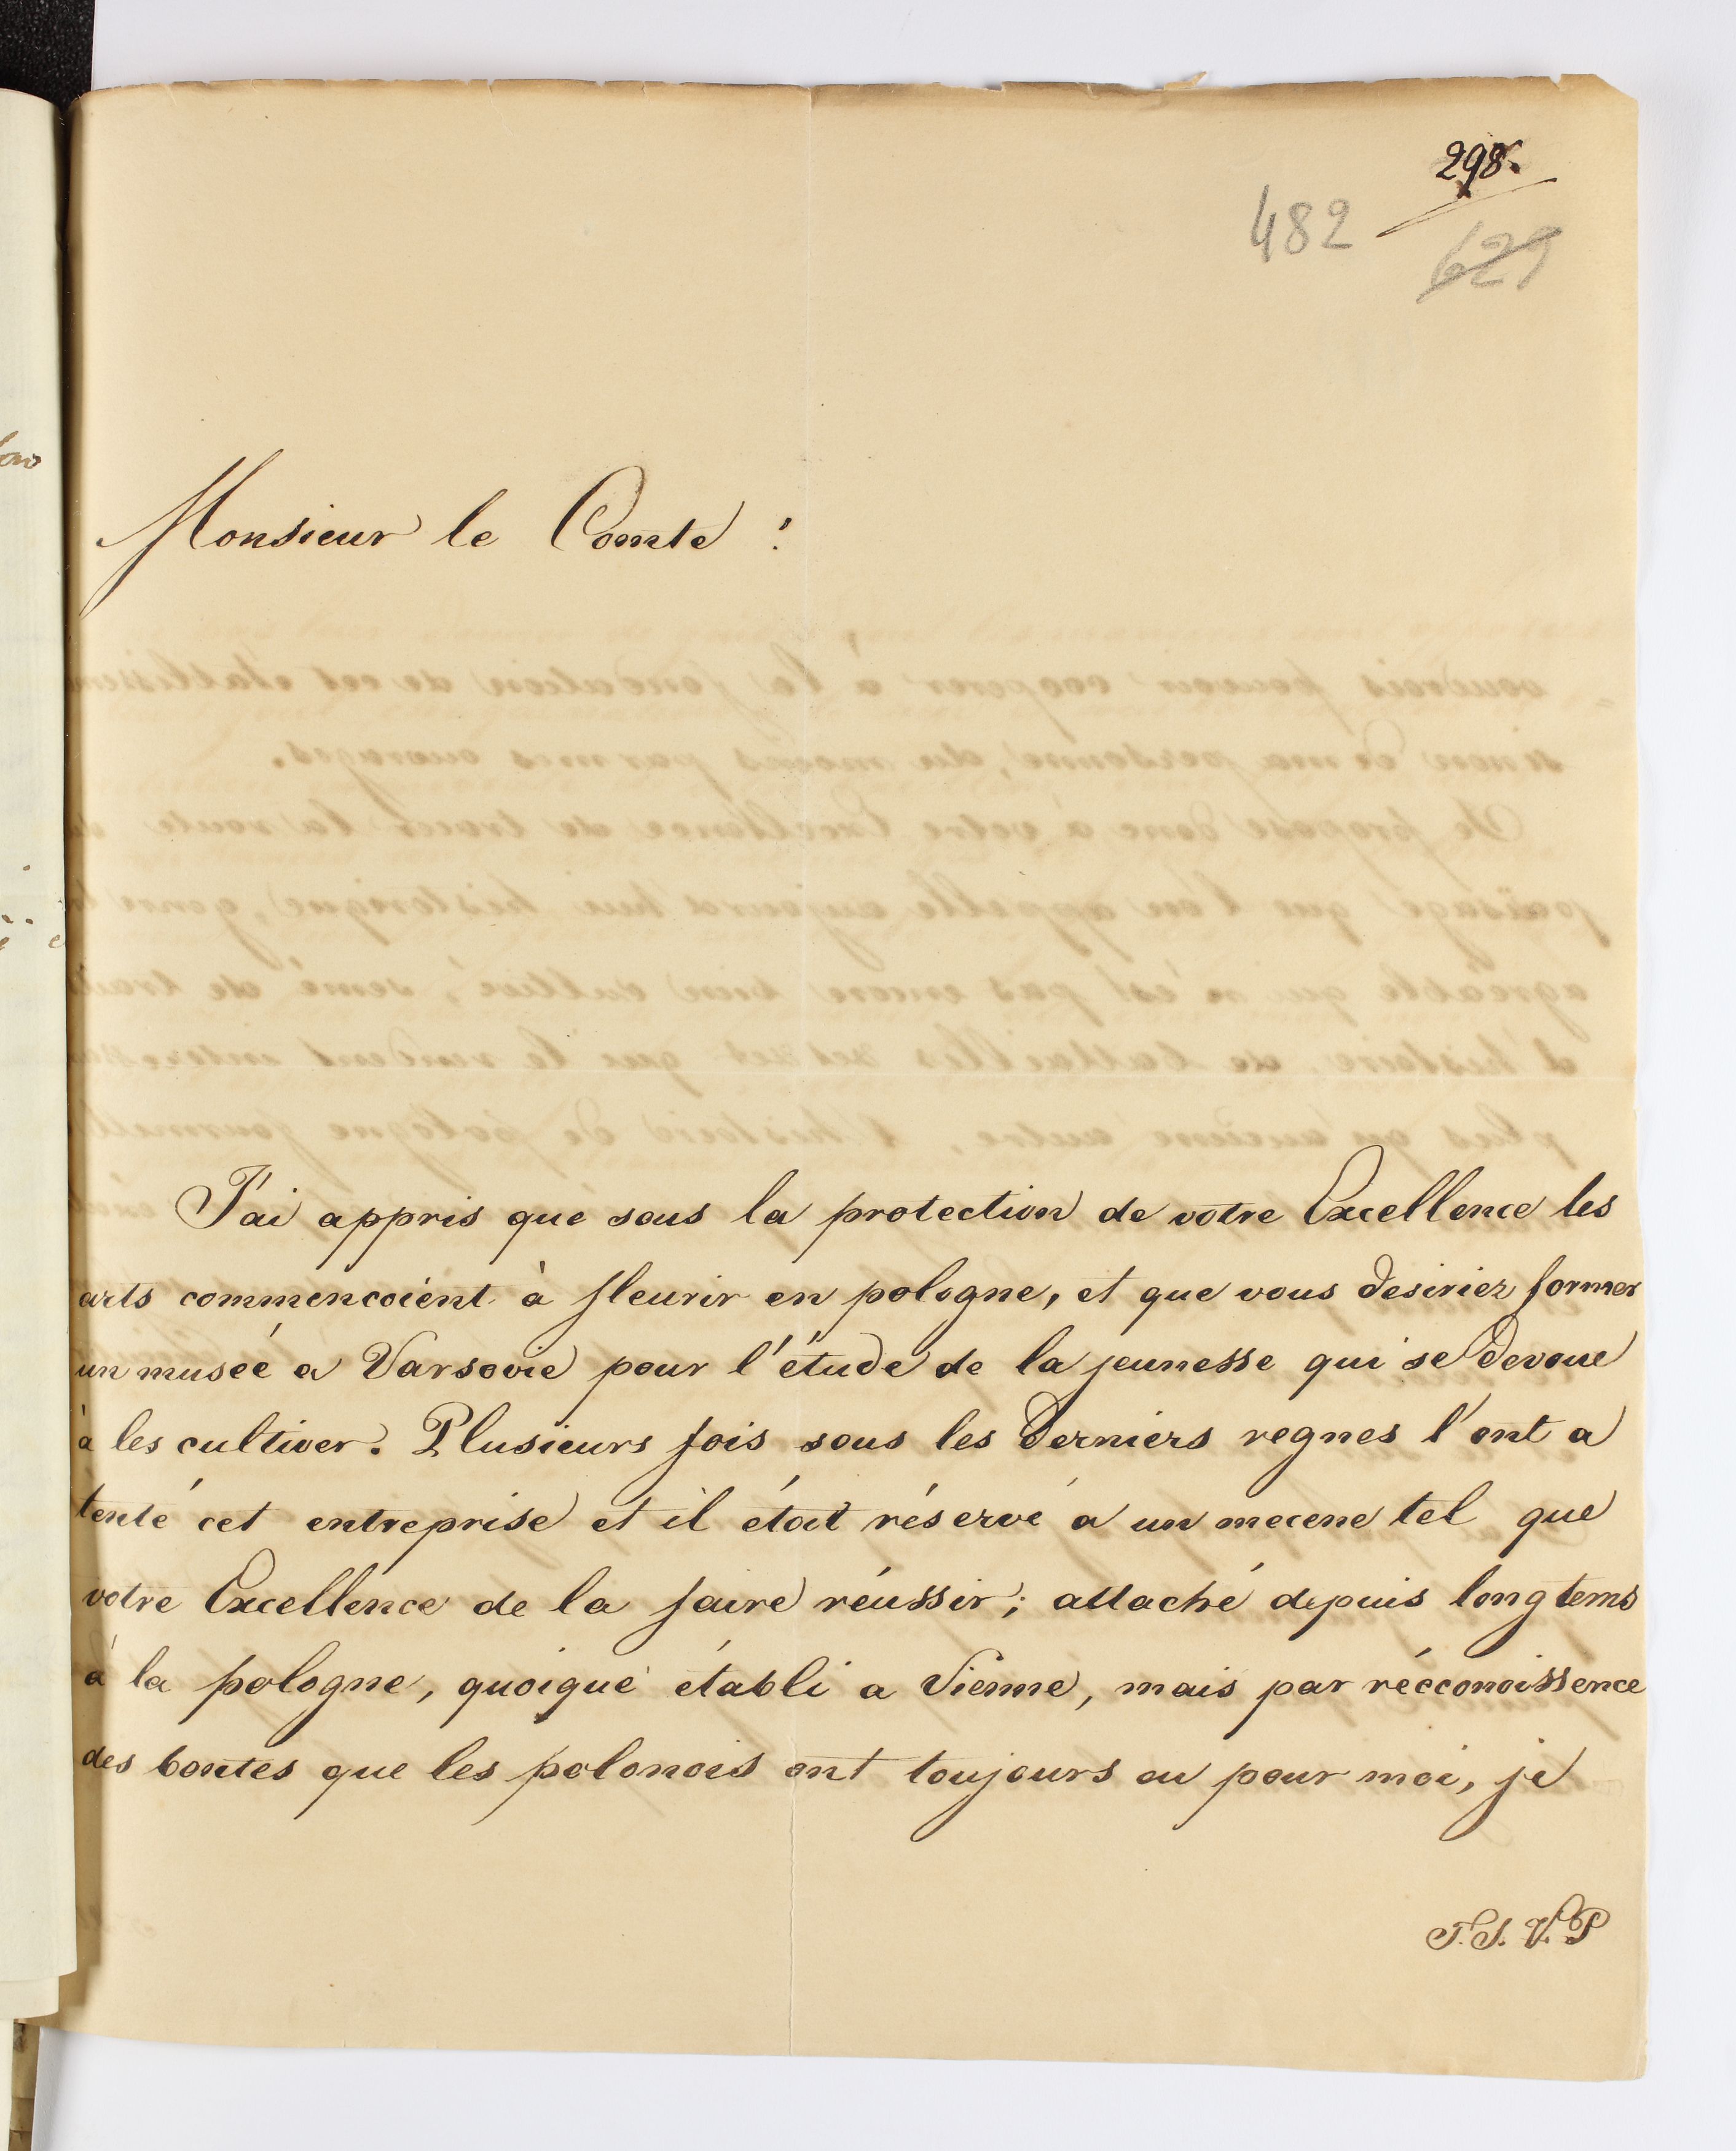 298.
482
629
Monsieur le Comte !
J'ai appris que sous la protection de votre Excellence les
arts commencoient à fleurir en pologne, et que vous desiriez former
un museé a Varsovie pour l'étude de la jeunesse qui se devoue
à les cultiver. Plusieurs fois sous les derniers regnes l'ont a
tenté cet entreprise et il étoit réservé a un mecene tel que
votre Excellence de la faire réussir; attaché depuis longtems
à la pologne, quoique établi a Vienne, mais par récconoissence
des bontes que les polonois ont toujours eu pour moi, je
T.S.V.P